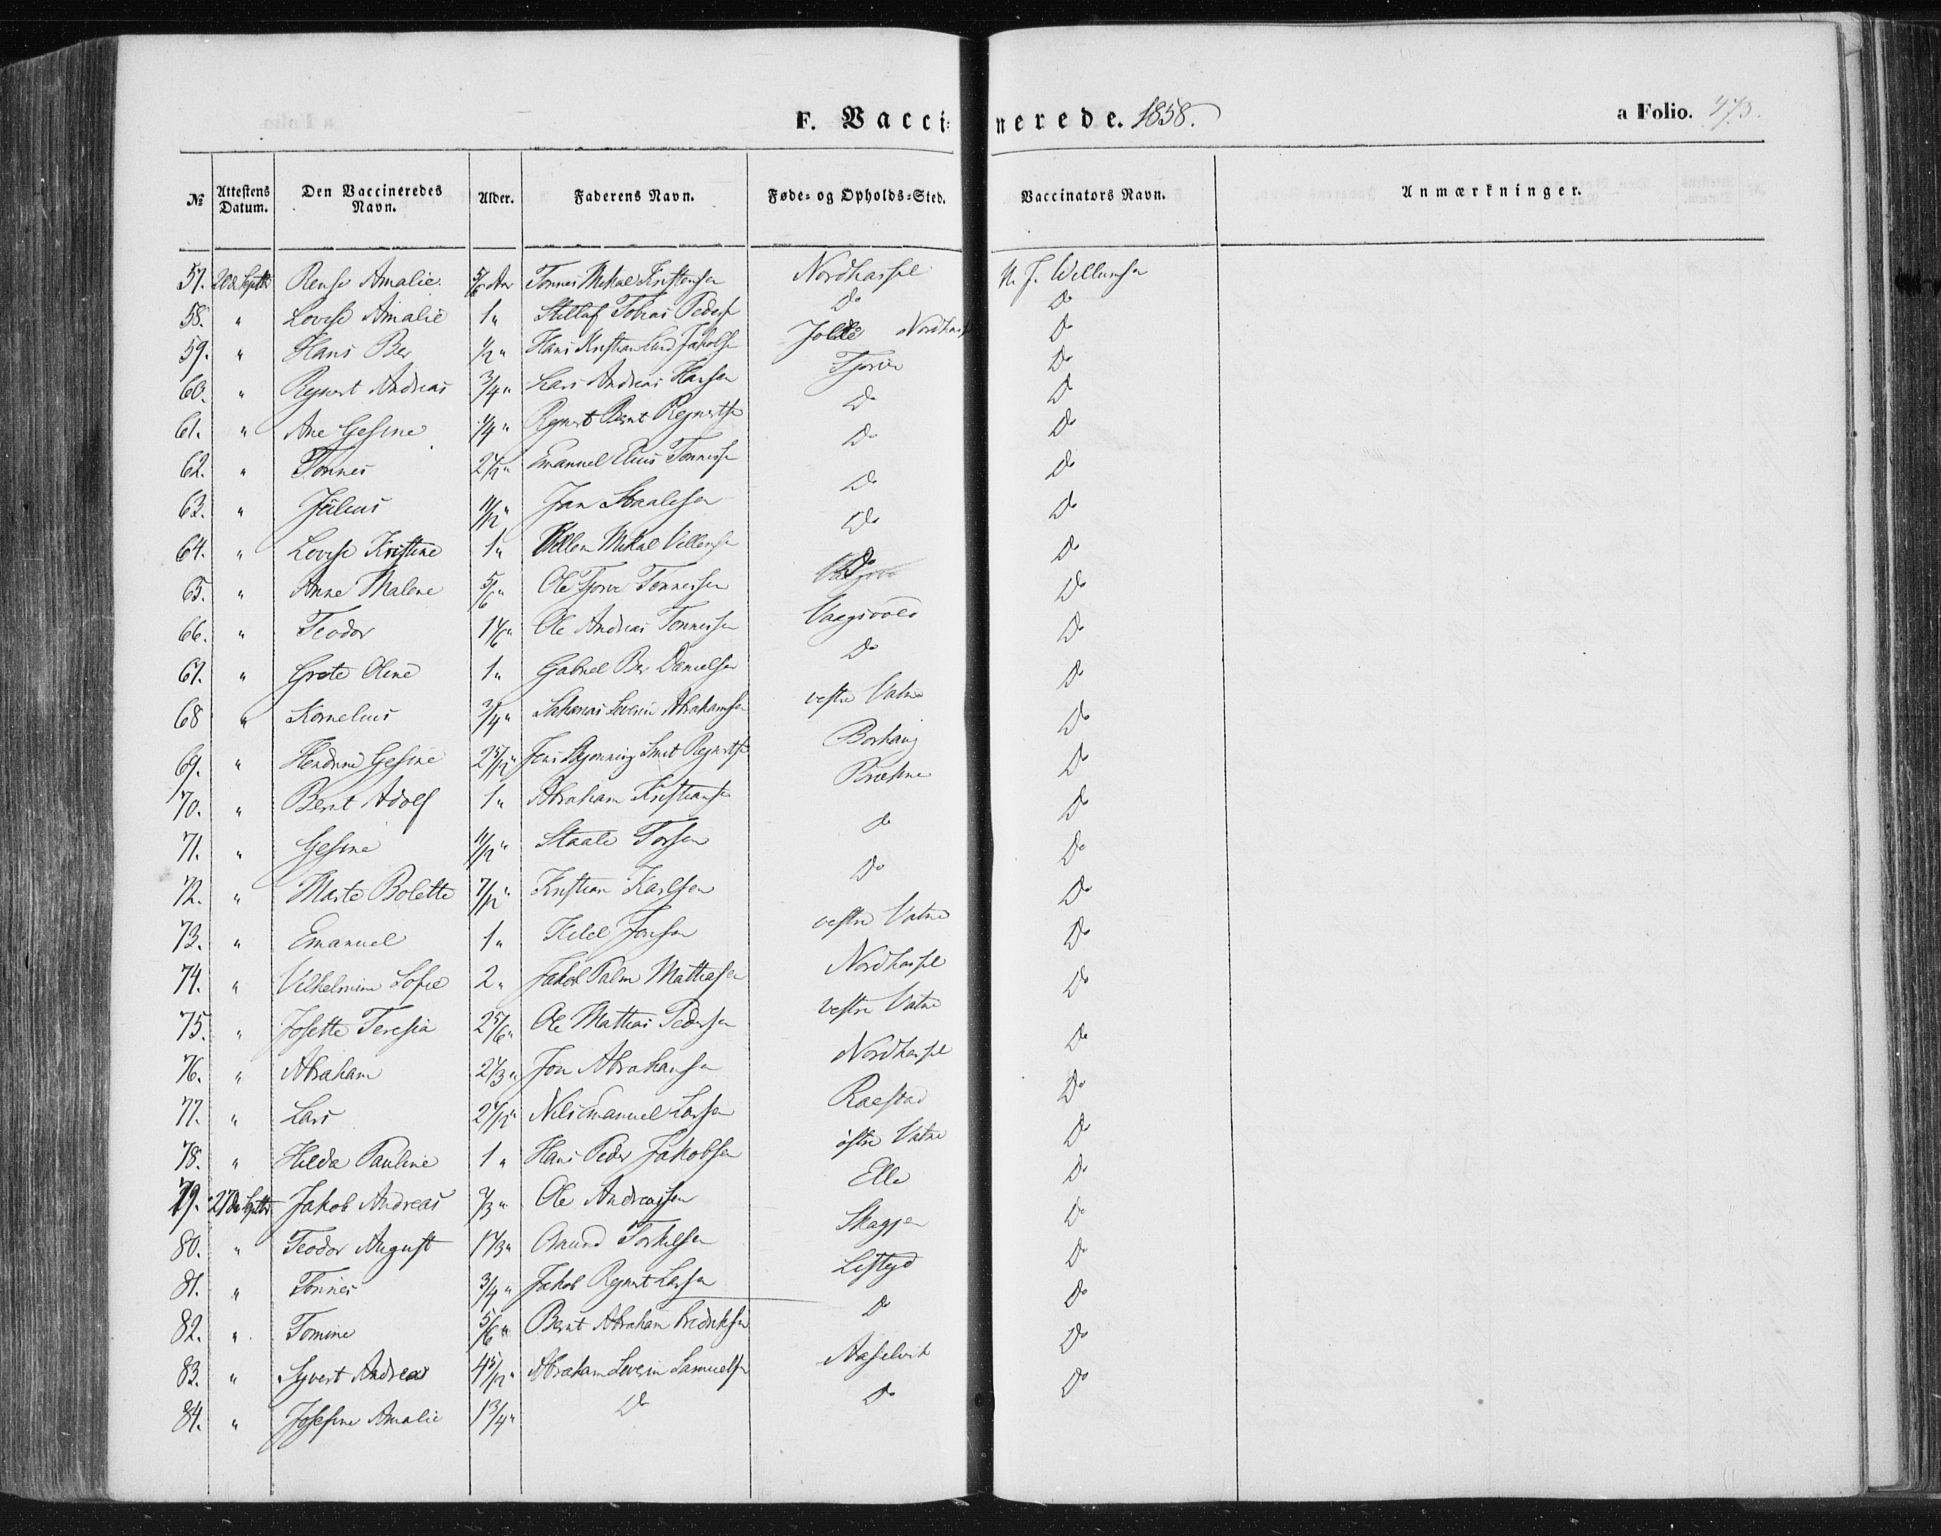 F. Vaccinerede. 1858.
a Folio. 473.
№ Attestens Datum. Den Vaccineredes Navn. Alder. Faderens Navn. Føde- og Opholds-Sted. Vaccinators Navn. Anmærkninger.
57. 20de Septbr Amalie. 5/6 Aar Tønnes Mikal Kristensen Nordhassel Willumsen
58. " Lovise Amalie 1 " Tobias Peders. Do Do
59. " Hans Ber 1/2 " Hans Kristian Lund Jakobs. Jolle Nordhas. Do
60. " Reynert Andreas 3/4 " Lars Andreas Hansen Tjørve Do
61. " Ane Gesine 1/4 " Reynert Bernt Reynertsen Do Do
62. " Tønnes Emanuel Elias Tønness. Do Do
63. " Julius 11/12 " Jan Staalesen Do Do
64. " Lovise Kristine 1 " Villem Mikal Villemsen Do Do
65. " Anne Malene 5/6 " Ole Tjørve Tønnessen Do Do
66. " Teodor 1 1/6 " Ole Andreas Tønnessen Vaagsvold Do
67. " Grete Oline 1 " Gabriel Ber Danielsen Do Do
68 " Kornelius 3/4 " Sakarias Severin Abrahamsen vestre Vatne Do
69. " Hendrine Gesine 2 5/12 " Jens Skjønning Smit Reynerts. Borhaug Do
70. " Bernt Adolf 1 " Abraham Kristians. Brækne Do
71. " Gesine 11/12 " Staale Torsen Do Do
72. " Marte Bolette 7/12 " Kristian Karlsen Do Do
73. " Emanuel 1 " Keld Jonsen vestre Vatne Do
74. " Vilhelmine Sofie 2 " Jakob Palm Mathiasen Nordhassel Do
75. " Josette Teresia 2 5/6 " Ole Mathias Pedersen vestre Vatne Do
76. " Abraham 2 1/3 " Jon Abrahamsen Nordhassel Do
77. " Lars Nils Emanuel Larsen Raestad Do
78. " Hilda Pauline 1 " Hans Peder Jakobsen østre Vatne Do
79. 27de Septbr Jakob Andreas 2/3 " Ole Andreassen Elle Do
80. " Teodor August 1 1/3 " Aanund Torkelsen Skagjen Do
81. " Tønnes 3/4 " Jakob Reynert Larsen Listeyd Do
82. " Tomine 5/6 " Bernt Abraham Fredriksen Do Do
83. " Syvert Andreas 4 5/12 " Abraham Severin Samuelsen Aaselvik Do
84. " Josefine Amalie 1 3/4 " Do Do Do